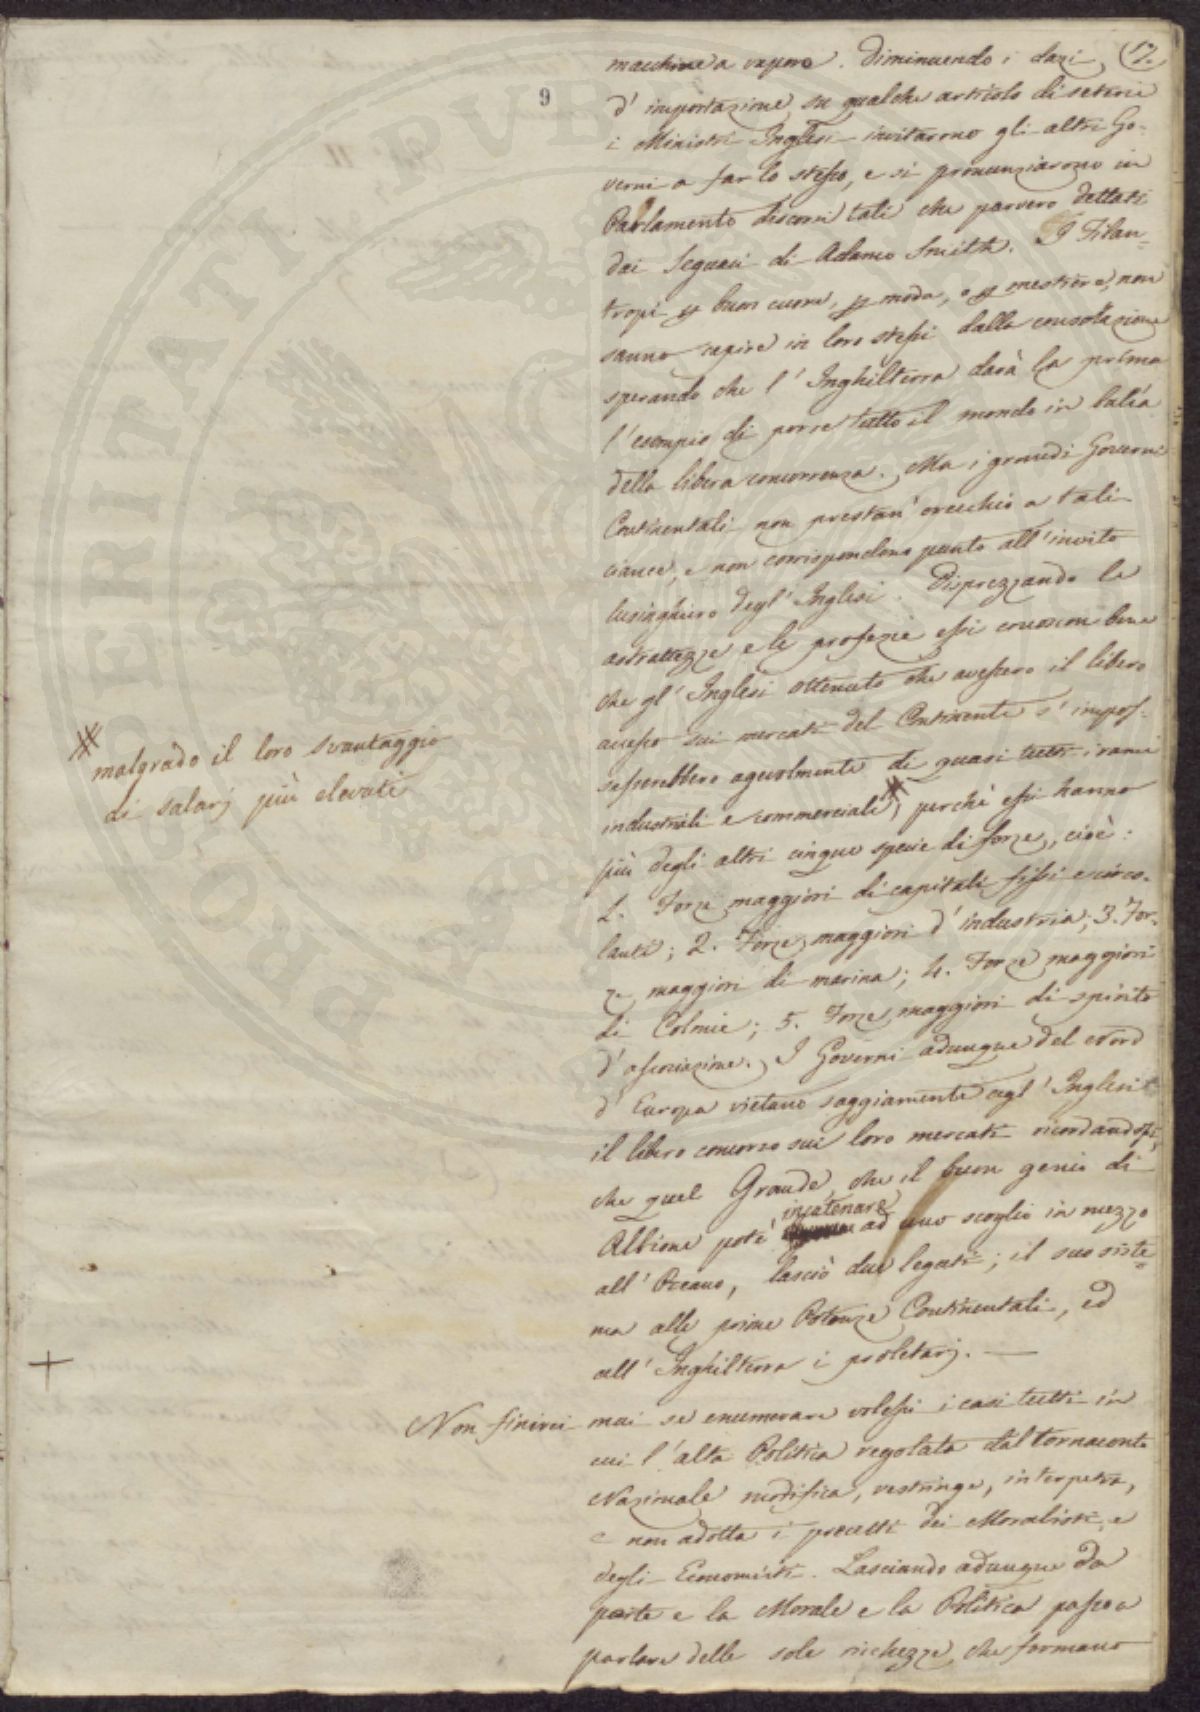 17.
9
macchine a vapore. Diminuendo i dazi
d'importazione su qualche articolo di seterie
i Ministri Inglesi invitarono gli altri Go-
verni a far lo stesso, e si pronunziarono in
Parlamento discorsi tali che parvero dettati
dai Seguaci di Adamo Smith. I Filan-
tropi p buon cuore, p moda, o p mestiere, non
sanno capire in loro stessi dalla consolazione
sperando che l'Inghilterra darà la prima
l'esempio di porre tutto il mondo in balìa
della libera concorrenza. Ma i grandi Governi
Continentali non prestan' orecchio a tali
ciance, e non corrispondono punto all'invito
lusinghiero degl'Inglesi. Disprezzando le
astrattezze e le profezie essi conoscon bene
che gl'Inglesi ottenuto che avessero il libero
accesso sui mercati del Continente s'impos-
sesserebbero agevolmente di quasi tutti i rami
industriali e commerciali, perchè essi hanno
più degli altri cinque specie di forze, cioè:
1. Forze maggiori di capitali fissi e circo-
lanti; 2. Forze maggiori d'industria; 3. For-
ze maggiori di marina; 4. Forze maggiori
di Colonie; 5. Forze maggiori di spirito
d'associazione. I Governi adunque del Nord
d'Europa vietano saggiamente agl'Inglesi
il libero concorso sui loro mercati ricordandosi,
che quel Grande, che il buon genio di
Albione potè incatenare ad uno scoglio in mezzo
all'Oceano, lasciò due legati; il suo siste-
ma alle prime Potenze Continentali, ed
all'Inghilterra i proletarj. —
Non finirei mai se enumerare volessi i casi tutti in
cui l'alta Politica regolata dal tornaconto
Nazionale modifica, restringe, interpetra,
e non adotta i precetti dei Moralisti, e
degli Economisti. Lasciando adunque da
parte e la Morale e la Politica passo a
parlare delle sole ricchezze, che formano
malgrado il loro svantaggio
di salarj più elevati
PROSPERITATI PVB